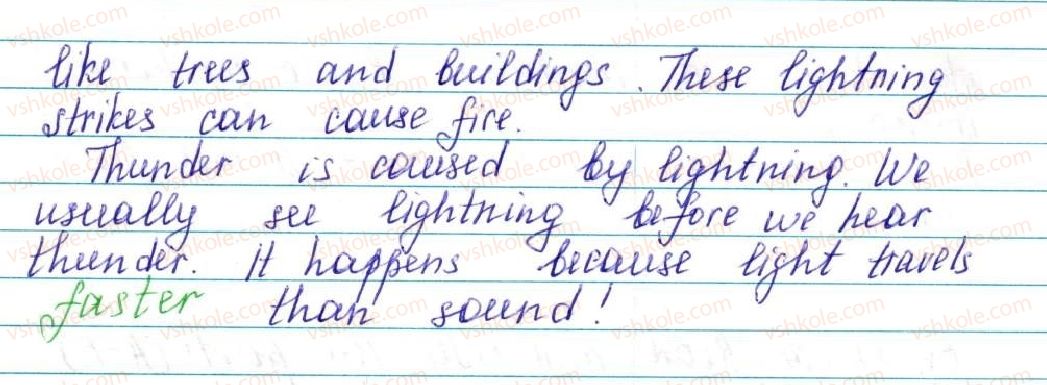 like trees and buildings. These lightning
strikes can cause fire.
Thunder is caused by lightning. We
usually see lightning before we hear
thunder. It happens because light travels
faster than sound!